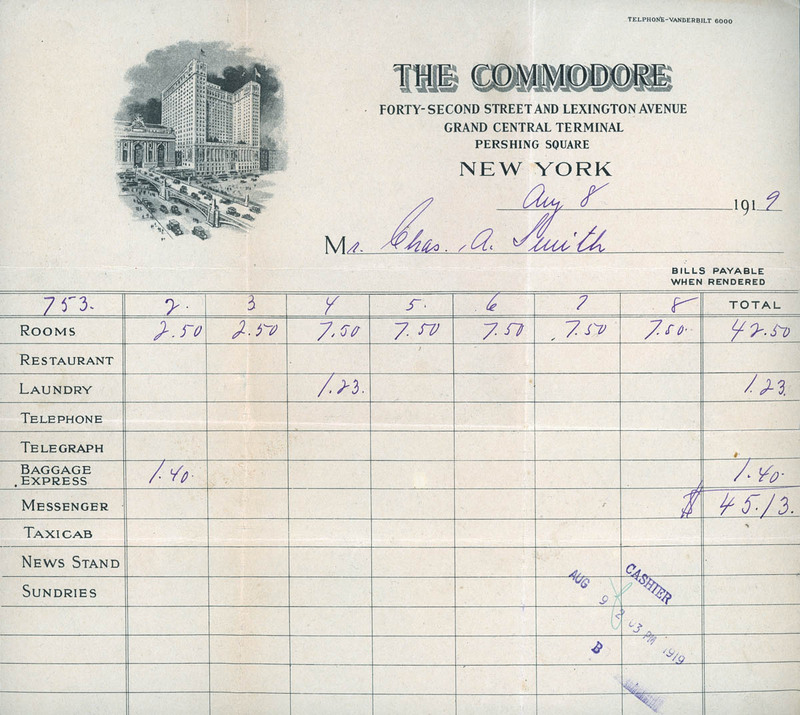 TELPHONE-VANDERBILT 6000
THE COMMODORE
FORTY-SECOND STREET AND LEXINGTON AVENUE
GRAND CENTRAL TERMINAL
PERSHING SQUARE
NEW YORK
Aug 8 1919
Mr. Chas. A. Smith
BILLS PAYABLE
WHEN RENDERED
753. 2. 3 4 5. 6 7 8 TOTAL
ROOMS 2.50 2.50 7.50 7.50 7.50 7.50 7.50. 42.50
RESTAURANT
LAUNDRY 1.23. 1.23.
TELEPHONE
TELEGRAPH
BAGGAGE
EXPRESS 1.40. 1.40.
MESSENGER $ 45.13.
TAXICAB
NEWS STAND
SUNDRIES
CASHIER
AUG 9 2 03 PM 1919
B